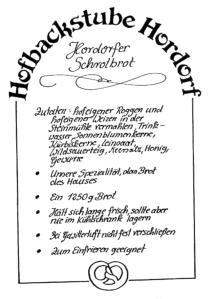 Hofbackstube Hordorf
Hordorfer
Schrotbrot
Zutaten: hofeigener Roggen und
hofeigener Weizen in der
Steinmühle vermahlen, Trink-
wasser, Sonnenblumenkerne,
Kürbiskerne, Leinsaat,
Wildsauerteig, Meersalz, Honig,
Gewürze
• Unsere Spezialität, das Brot
des Hauses
• Ein 1250g Brot
• Hält sich lange frisch, sollte aber
nie im Kühlschrank lagern
• Bei Gewitterluft nicht fest verschließen
• Zum Einfrieren geeignet